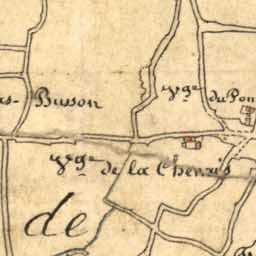 as- Busson
vge du Pon
vge de la Chenais
de